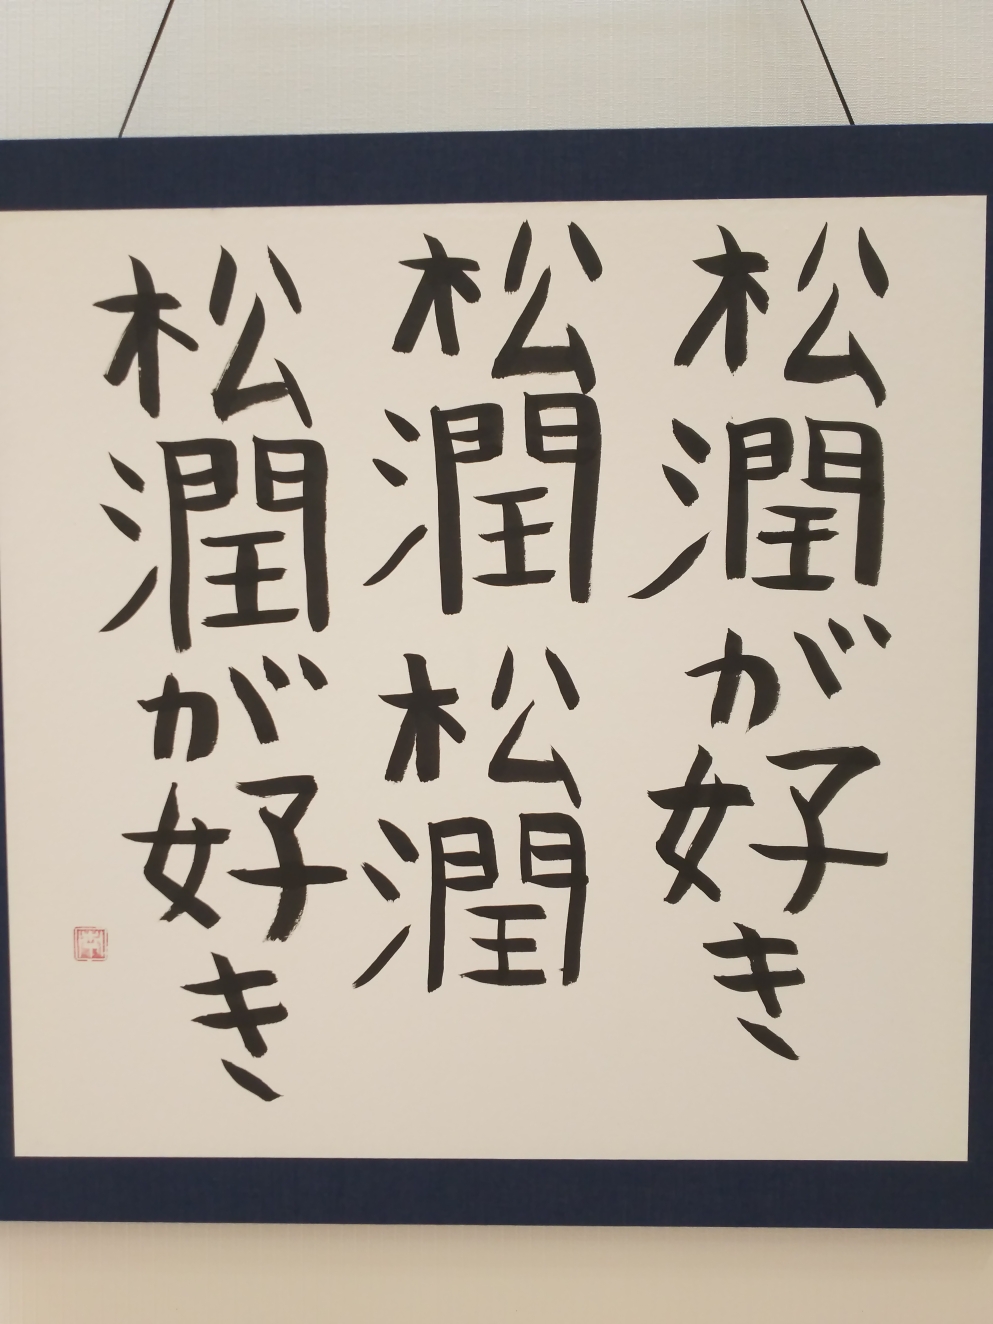 松潤が好き
松潤松潤
松潤が好き